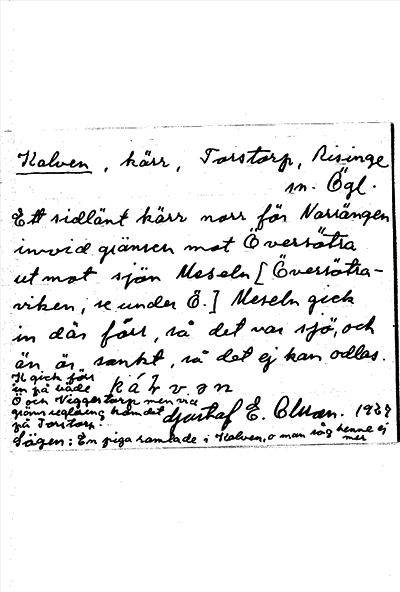 Kalven, kärr, Torstorp, Risinge
sn. Ögl.
Ett sidlänt kärr norr för Norrängen
invid gränsen mot Översätra
ut mot sjön Meseln [Översätra-
viken, se under Ö.] Meseln gick
in där förr, så det var sjö, och
än är sankt, så det ej kan odlas.
K gick förr
in på både
Ö och Viggestorp men vid
gränsreglering kom det
på Torstorp.
Gustaf E. Olsson. 1937
Sägen: En piga ramlade i Kalven, o man såg henne ej
mer